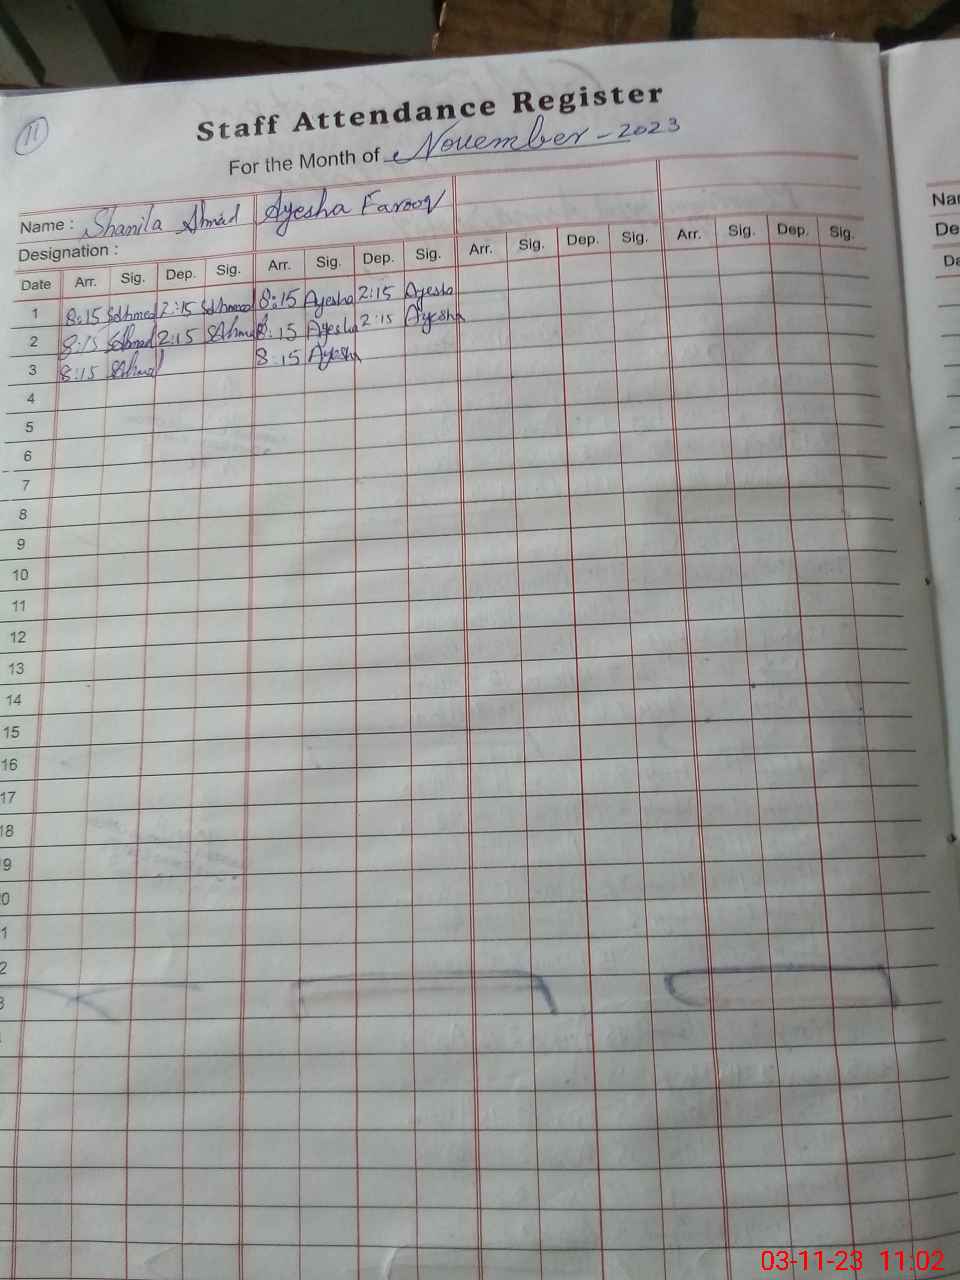 11
Staff Attendance Register
For the Month of November - 2023
Name : Shanila Ahmad Ayesha Farooq
Designation :
Date Arr. Sig. Dep. Sig. Arr. Sig. Dep. Sig. Arr. Sig. Dep. Sig. Arr. Sig. Dep. Sig.
1 8:15 SAhmed 2:15 SAhmed 8:15 Ayesha 2:15 Ayesha
2 8:15 SAhmad 2:15 SAhmad 8:15 Ayesha 2:15 Ayesha
3 8:15 SAhmad 8:15 Ayesha
4
5
6
7
8
9
10
11
12
13
14
15
16
17
18
9
0
1
2
3
Nar
De
Da
03-11-23 11:02